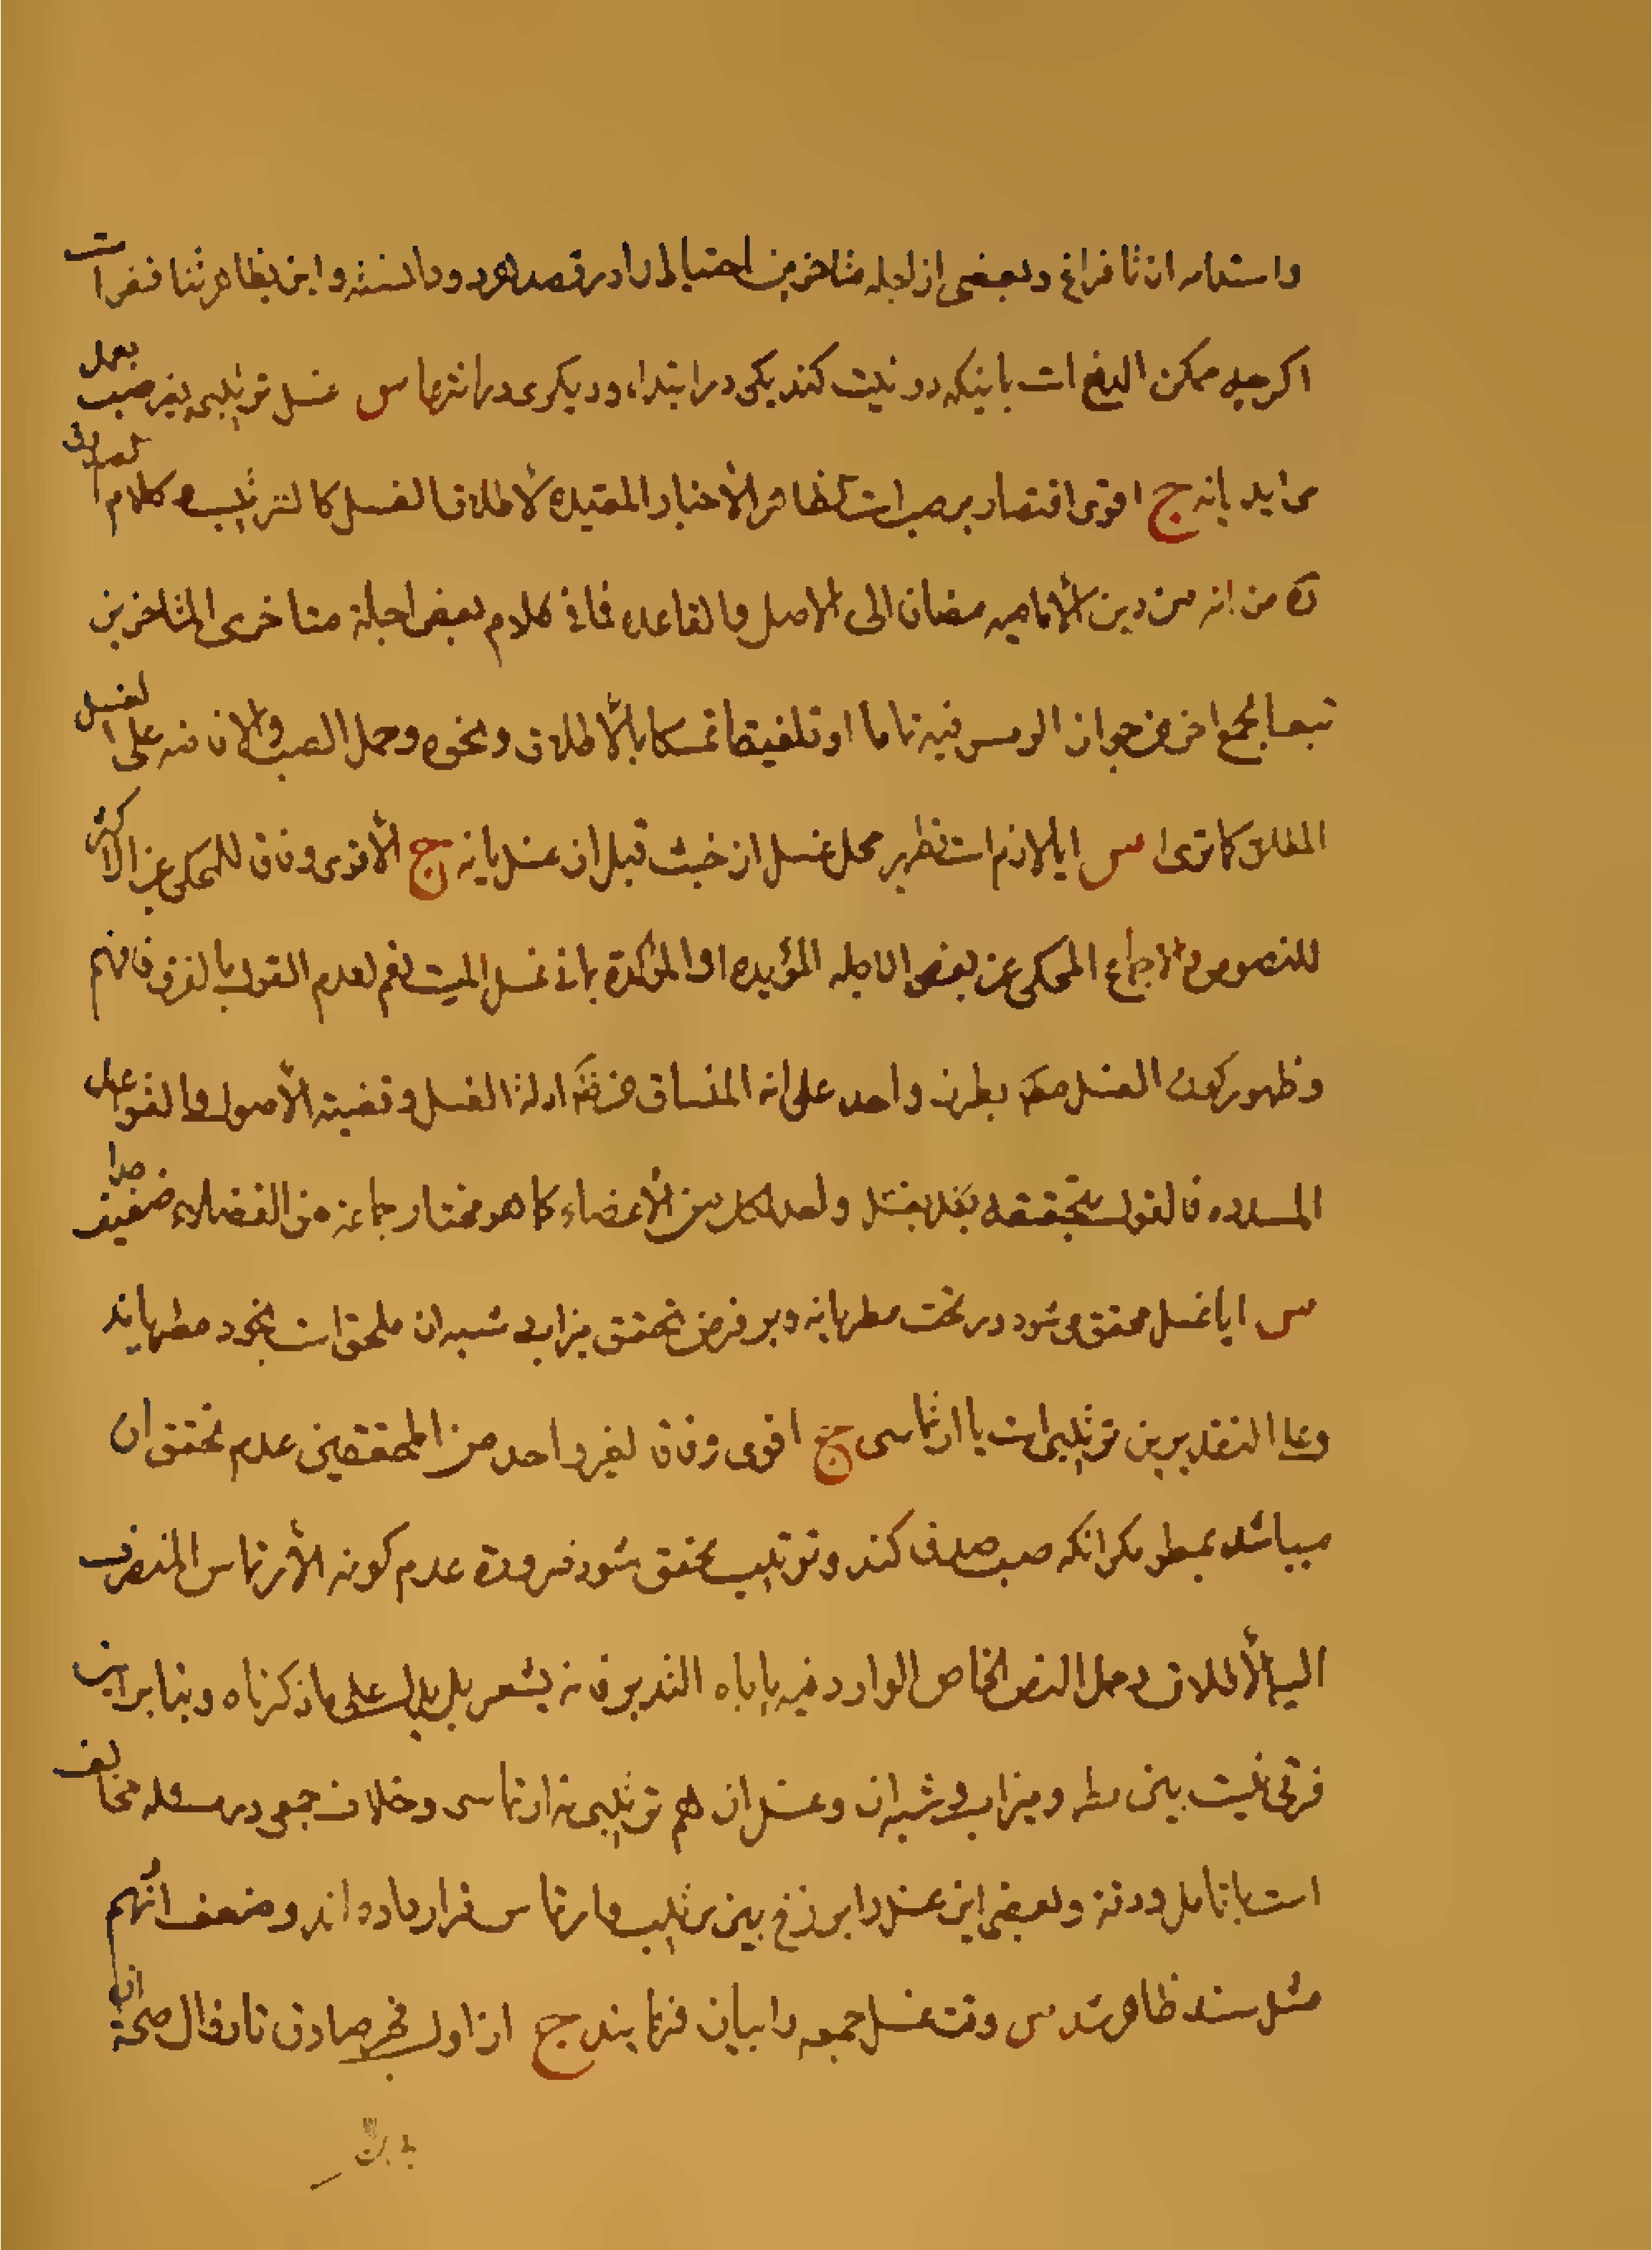 واستدامه ان تا فراغ وبعضی از اجله متاخرین احتیاط را در قصد هر دو دانسته و این بظاهر تنافر است
اکر چه ممکن الدفع است باینکه دو نیت کند یکی در ابتداء و دیکری در انتها س غسل ترتیبی بغیر صب بعمل
می اید یا نه ج اقوی اقتصار بر صب است لظاهر الأخبار المقیده لأطلاق الغسل کالترتیب و کلام الصدوق
ره من انه من دین الأمامیه مضافا الی الاصل والقاعده فما فی کلام بعض اجلة متاخری المتاخرین
تبعا لجمع اخر من جواز الرمس فیه تاما او تلفیقا تمسکا بالأطلاق ونحوه وحمل الصب والافاضه علی الغسل
المطلق کما تری س ایا لازم است تطهیر محل غسل از خبث قبل از غسل یا نه ج الأقوی وفاقا للمحکی عن الاکثر
للنصوص والاجماع المحکی عن بعض الاجله المؤیده او المؤکدة بما فی غسل المیت نعم لعدم القول بالفرق فافهم
وظهور کون الغسل بطرف واحد علی انه المنساق من ادلة الغسل وقضیة الأصول والقواعد
المسدده فالقول بتحققه بغسل واحد لکل من الأعضاء کما هو مختار جماعة من الفضلاء ضعیف جدا
س ایا غسل محقق می شود در تحت مطر یا نه و بر فرض تحقق میزاب و شبه ان ملحق است بخود مطر یا نه
وعلی التقدیرین ترتیبی است یا ارتماسی ج اقوی وفاقا لغیر واحد من المحققین عدم تحقق ان
میباشد بمطر مکر انکه صب صدق کند و ترتیب محقق شود ضرورة عدم کونه الأرتماس المنصرف
الیه الأطلاق وحمل النص الخاص الوارد فیه یاباه التدبر فانه یشعر بل یدل علی ما ذکرناه و بنابراین
فرقی نیست بین مطر و میزاب و شبه ان و غسل ان هم ترتیبی نه ارتماسی و خلاف جمعی در مسئله مخالف
است با تامل و دقة و بعضی این غسل را برزخ بین ترتیب و ارتماس قرار داده اند و ضعف انهم
مثل سند ظاهر شد س وقت غسل جمعه را بیان فرمایند ج از اول فجر صادق تا زوال صحة ان